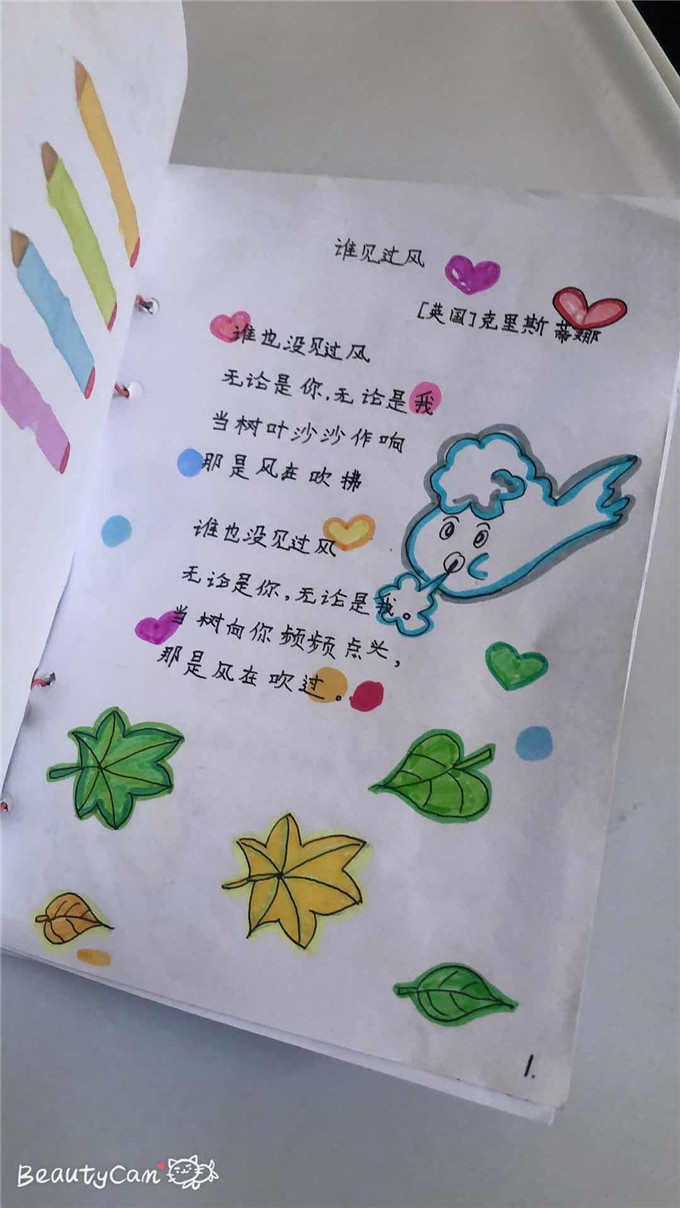 谁见过风
[英国]克里斯蒂娜
谁也没见过风
无论是你,无论是我
当树叶沙沙作响
那是风在吹拂
谁也没见过风
无论是你,无论是我。
当树向你频频点头,
那是风在吹过。
1.
BeautyCam